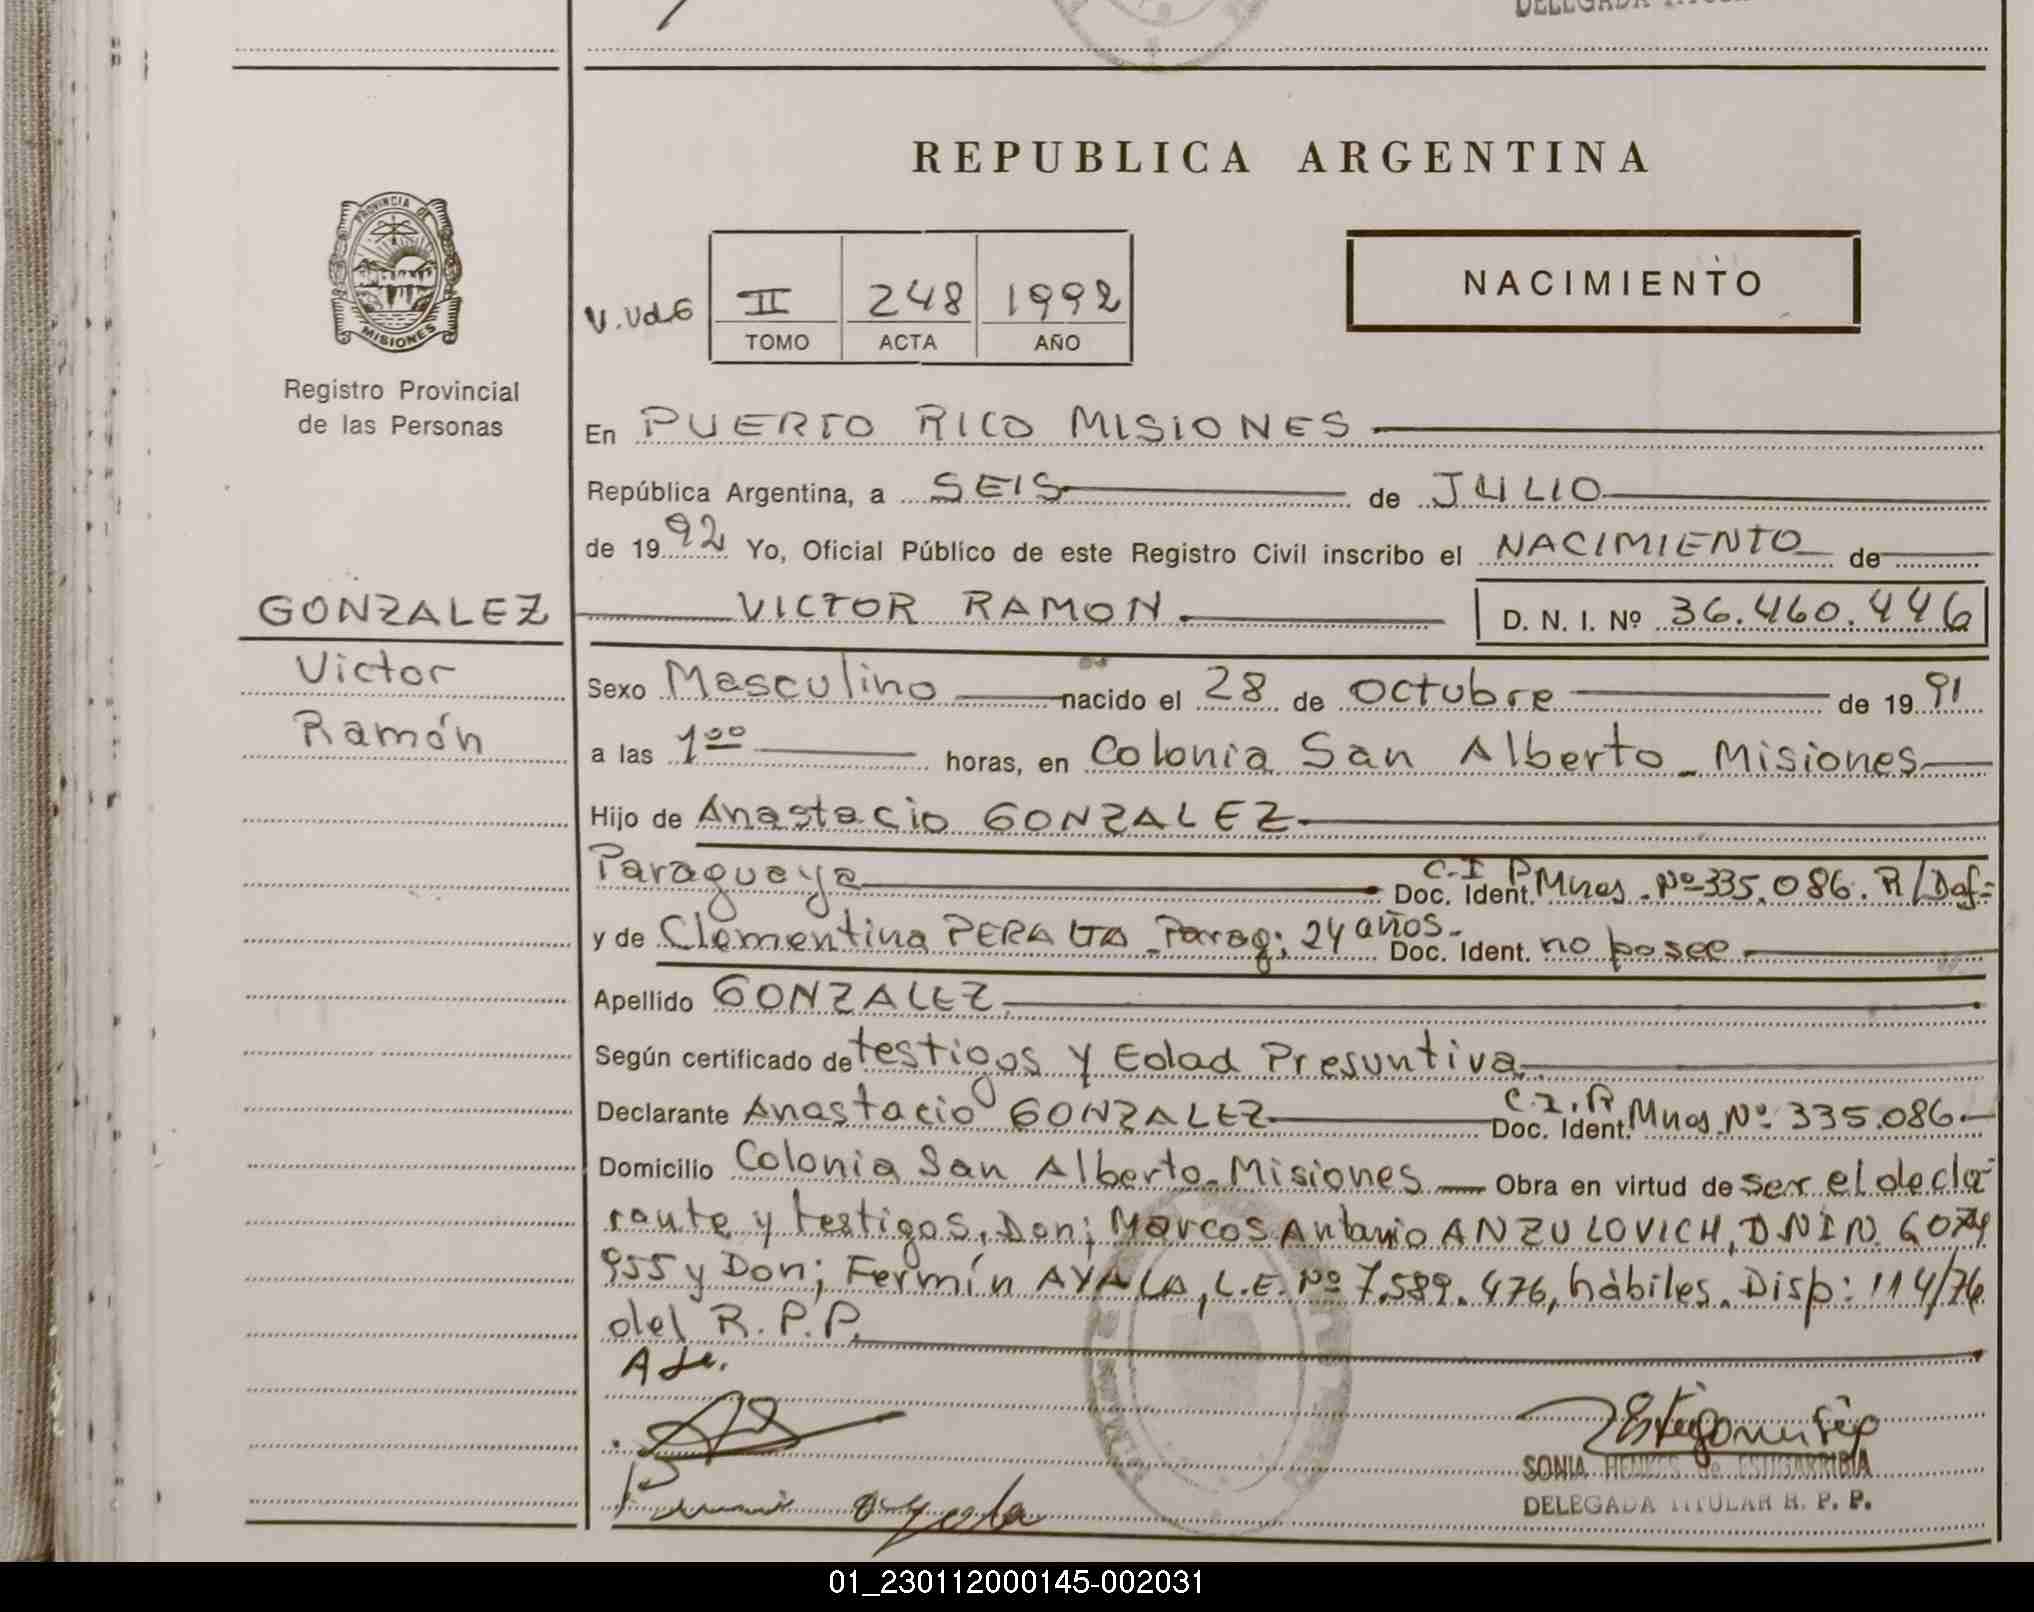 DELEGADA TITULAR
REPUBLICA ARGENTINA
PROVINCIA DE
MISIONES
Registro Provincial
de las Personas
V.Ud6
II 248 1992
TOMO ACTA AÑO
NACIMIENTO
En PUERTO RICO MISIONES
República Argentina, a SEIS de JULIO
de 1992 Yo, Oficial Público de este Registro Civil inscribo el NACIMIENTO de
GONZALEZ
Victor
Ramón
VICTOR RAMON. D. N. I. Nº 36.460.446
Sexo Masculino nacido el 28 de octubre de 1991
a las 1 00 horas, en Colonia San Alberto - Misiones
Hijo de Anastacio GONZALEZ
Paraguaya C.I P Doc. Ident. Mnes. Nº 335.086. R/Def=
y de Clementina PERALTA - Parag; 24 años. Doc. Ident. no posee
Apellido GONZALEZ
Según certificado de testigos y Edad Presuntiva
Declarante Anastacio GONZALEZ C.I.P. Doc. Ident. Mnes. Nº 335.086.-
Domicilio Colonia San Alberto - Misiones Obra en virtud de ser el decla-
rante y testigos, Don; Marcos Antonio ANZULOVICH, D.N.I N.
955 y Don; Fermín AYALA, L.E. Nº 7.589.476, hàbiles. Disp: 114/76
del R.P.P.
SONIA HENKES de ESTIGARRIBIA
DELEGADA TITULAR R. P. P.
01_230112000145-002031